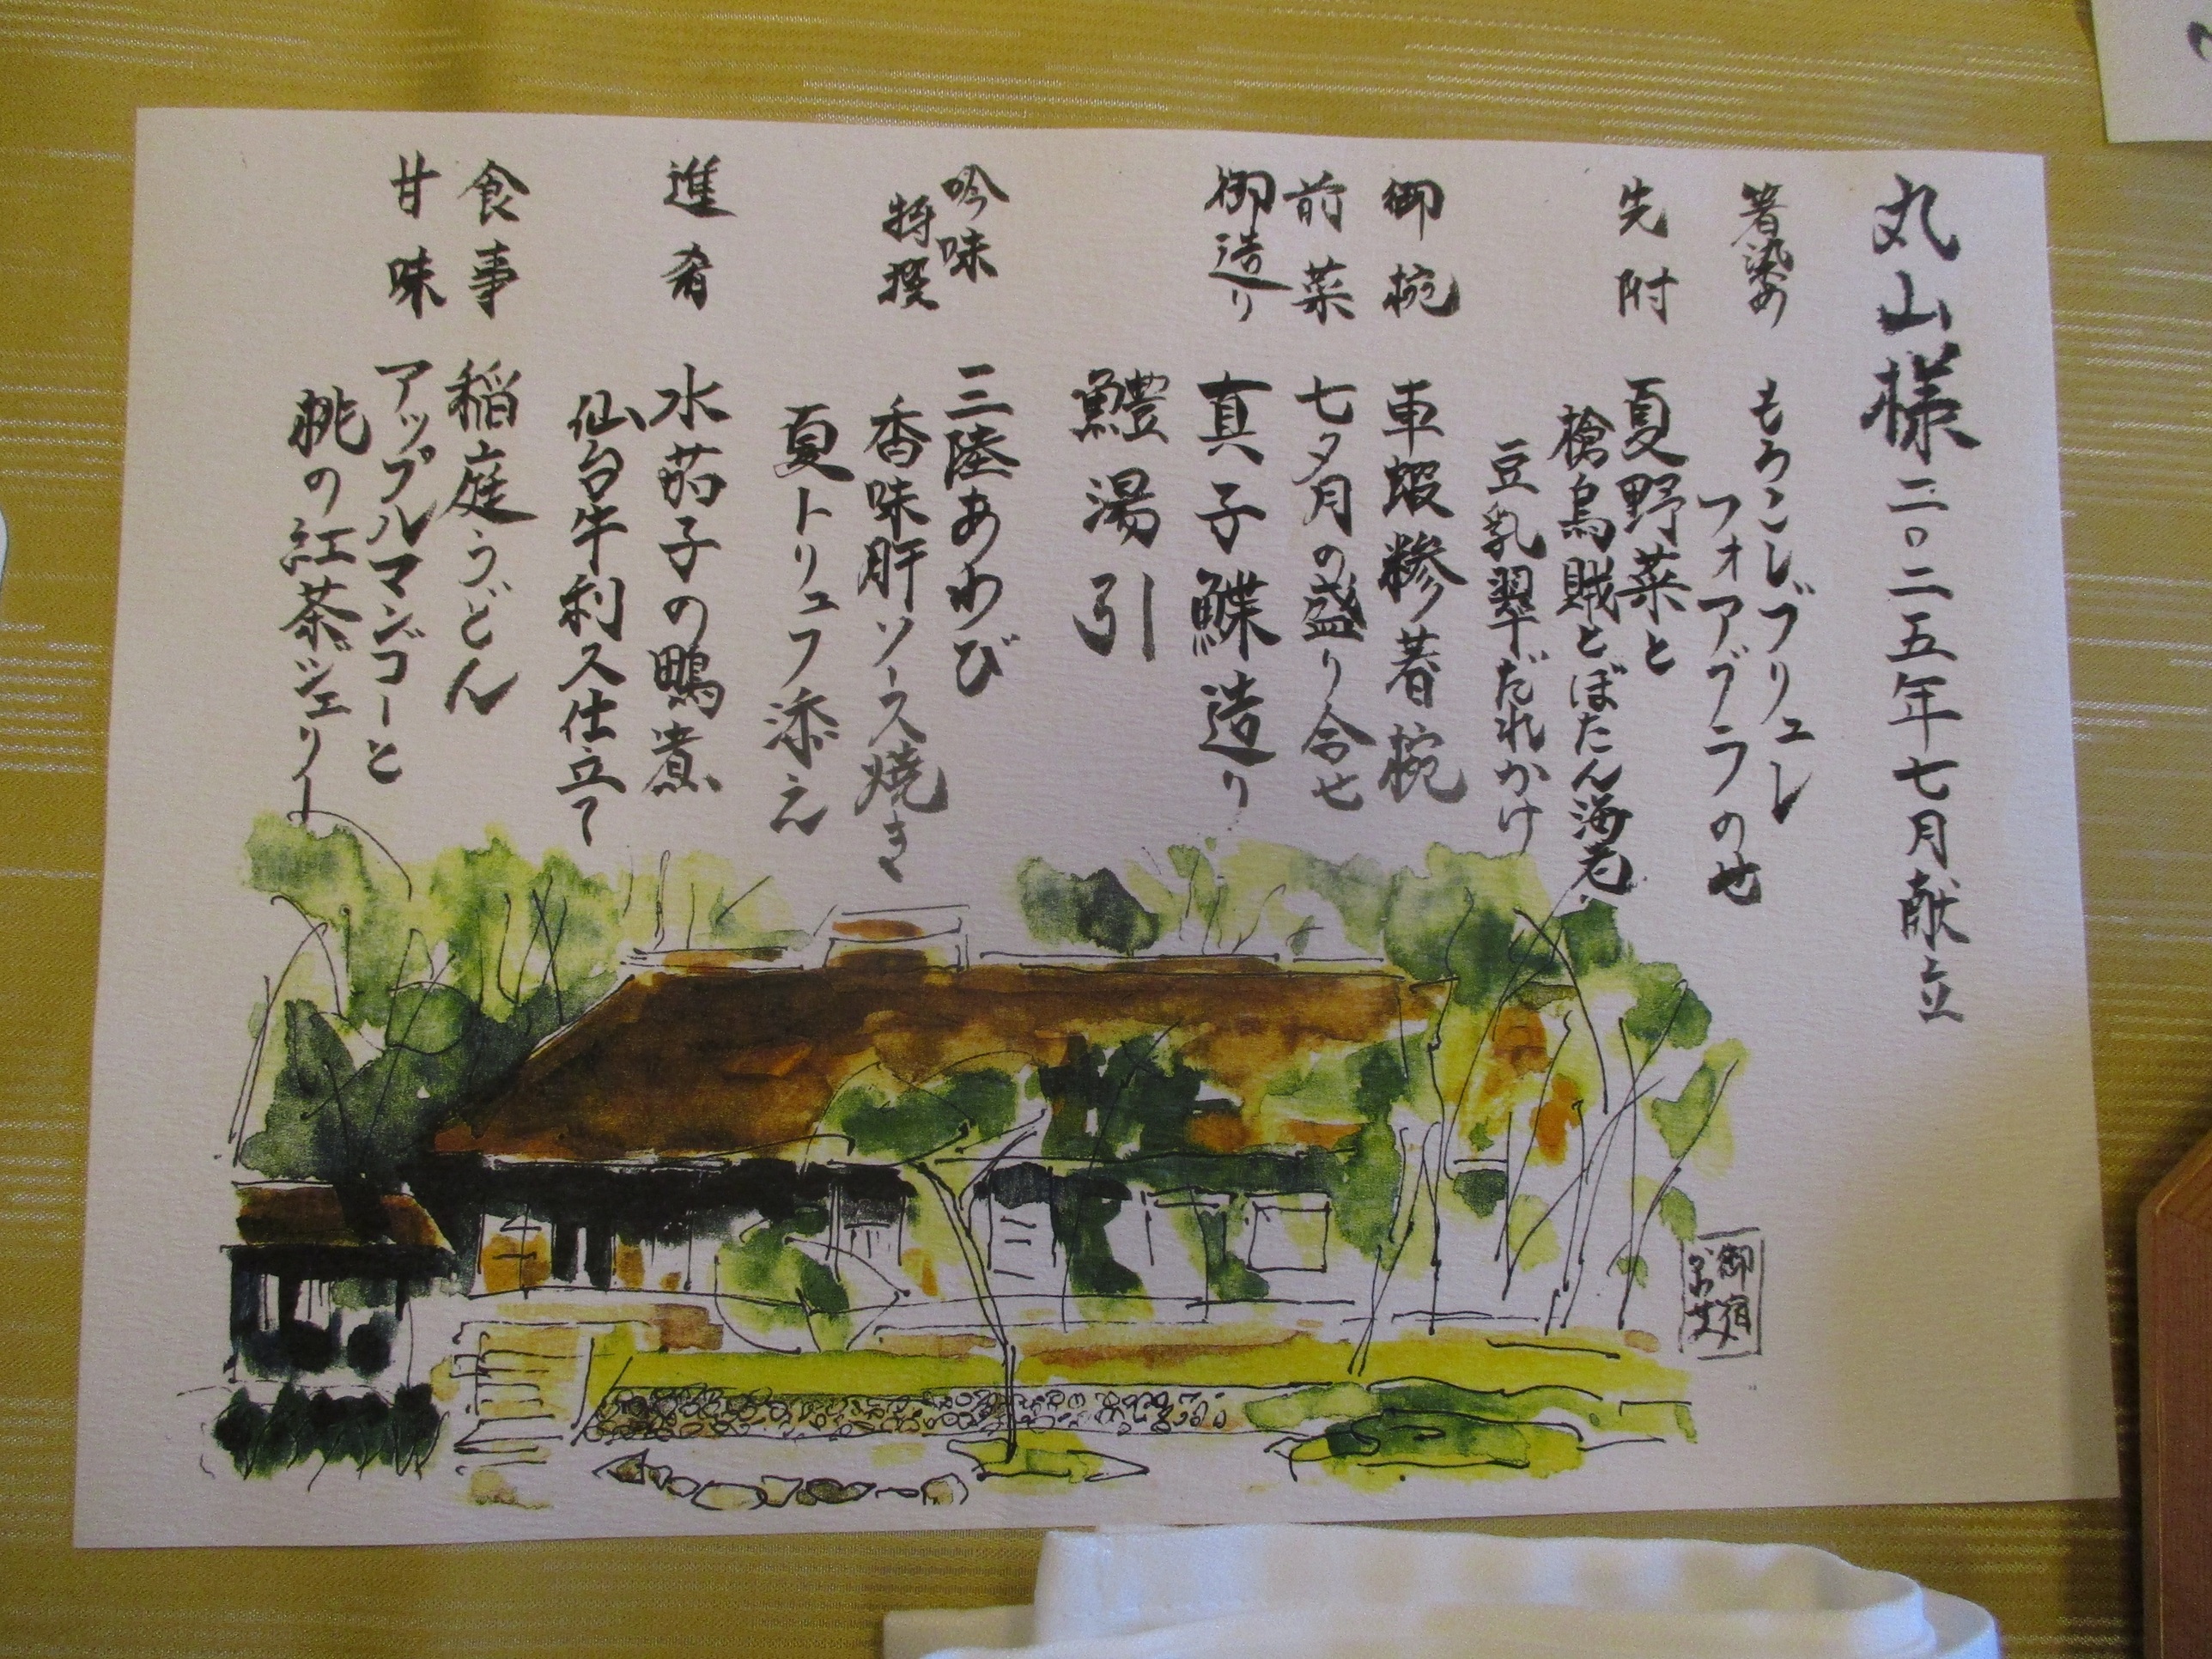 丸山様 二〇二五年七月献立
箸染め もろこしブリュレ
フォアグラのせ
先附 夏野菜と
槍烏賊とぼたん海老
豆乳翠だれかけ
御椀 車蝦糝薯椀
前菜 七夕月の盛り合せ
御造り 真子鰈造り
鱧湯引
吟味 三陸あわび
特撰 香味肝ソース焼き
夏トリュフ添え
進肴 水茄子の鴨煮
仙台牛利久仕立て
食事 稲庭うどん
甘味 アップルマンゴーと
桃の紅茶ジェリー
御宿
かわせ